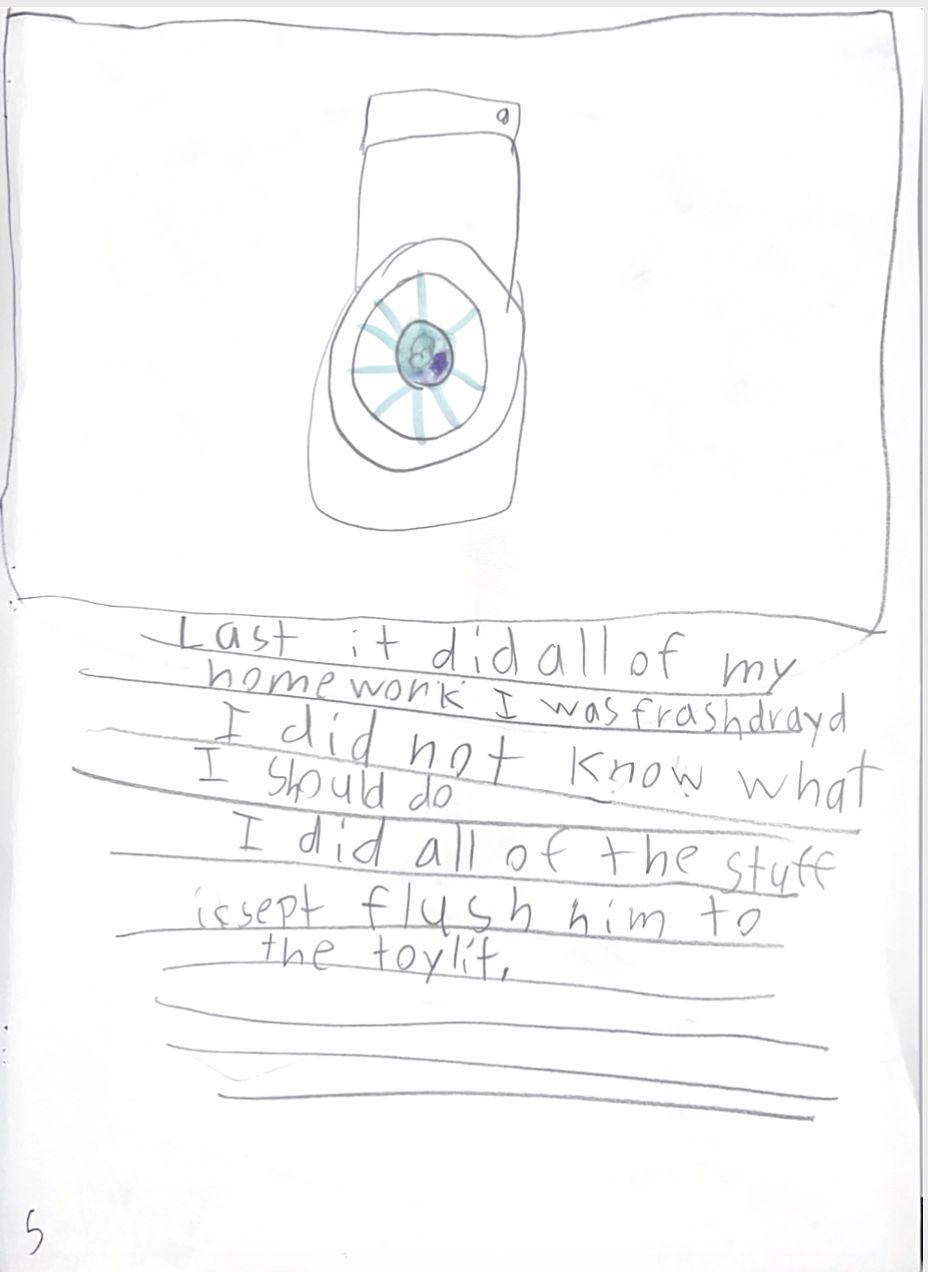 Last it did all of my
homework I was frashdrayd
I did not know what
I should do
I did all of the stuff
icsept flush him to
the toylit,
5